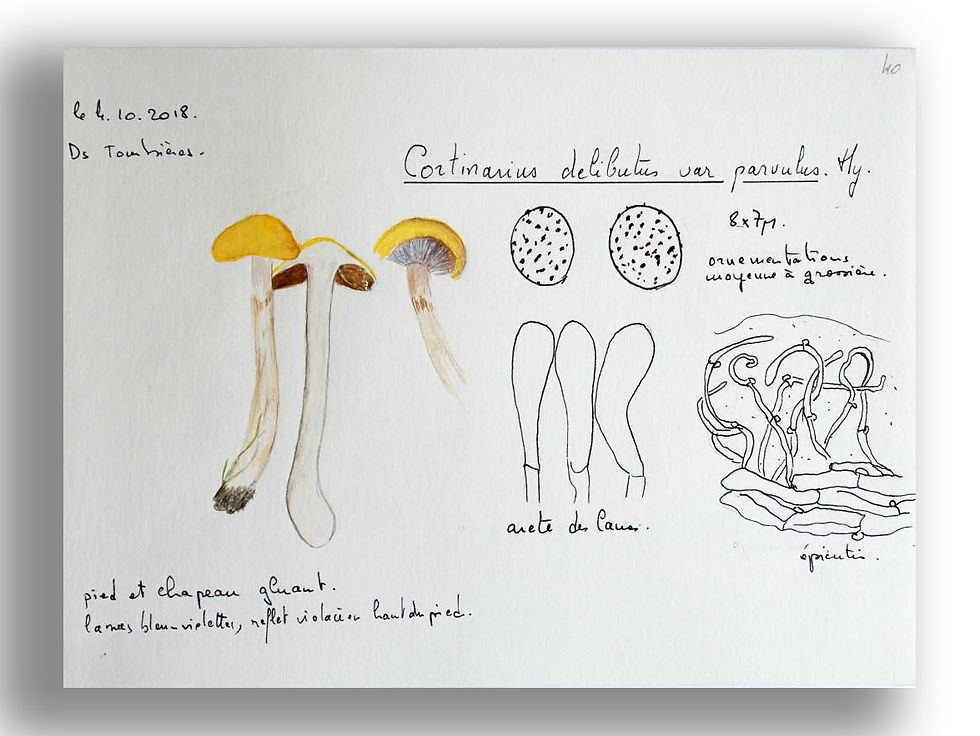 40
le 4.10.2018.
Ds Tourbières.
Cortinarius delibutus var parvulus. Hy.
8x7µ.
ornementations
moyenne à grossière.
arete des lames.
épicutis.
pied et chapeau gluant.
lames bleu-violettes, reflet violacé en haut du pied.